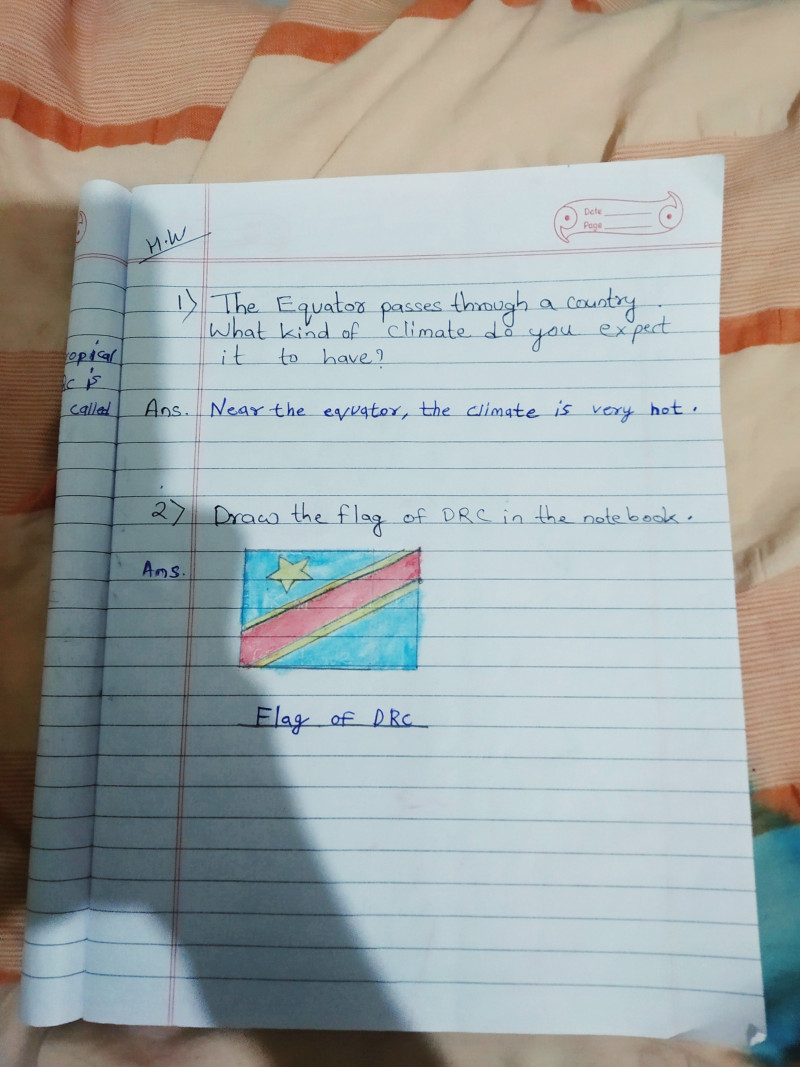 Date
Page
H.W
1) The Equator passes through a country.
What kind of climate do you expect
it to have?
opical
c is
called
Ans. Near the equator, the climate is very hot.
2) Draw the flag of DRC in the notebook.
Ans.
Flag of DRC